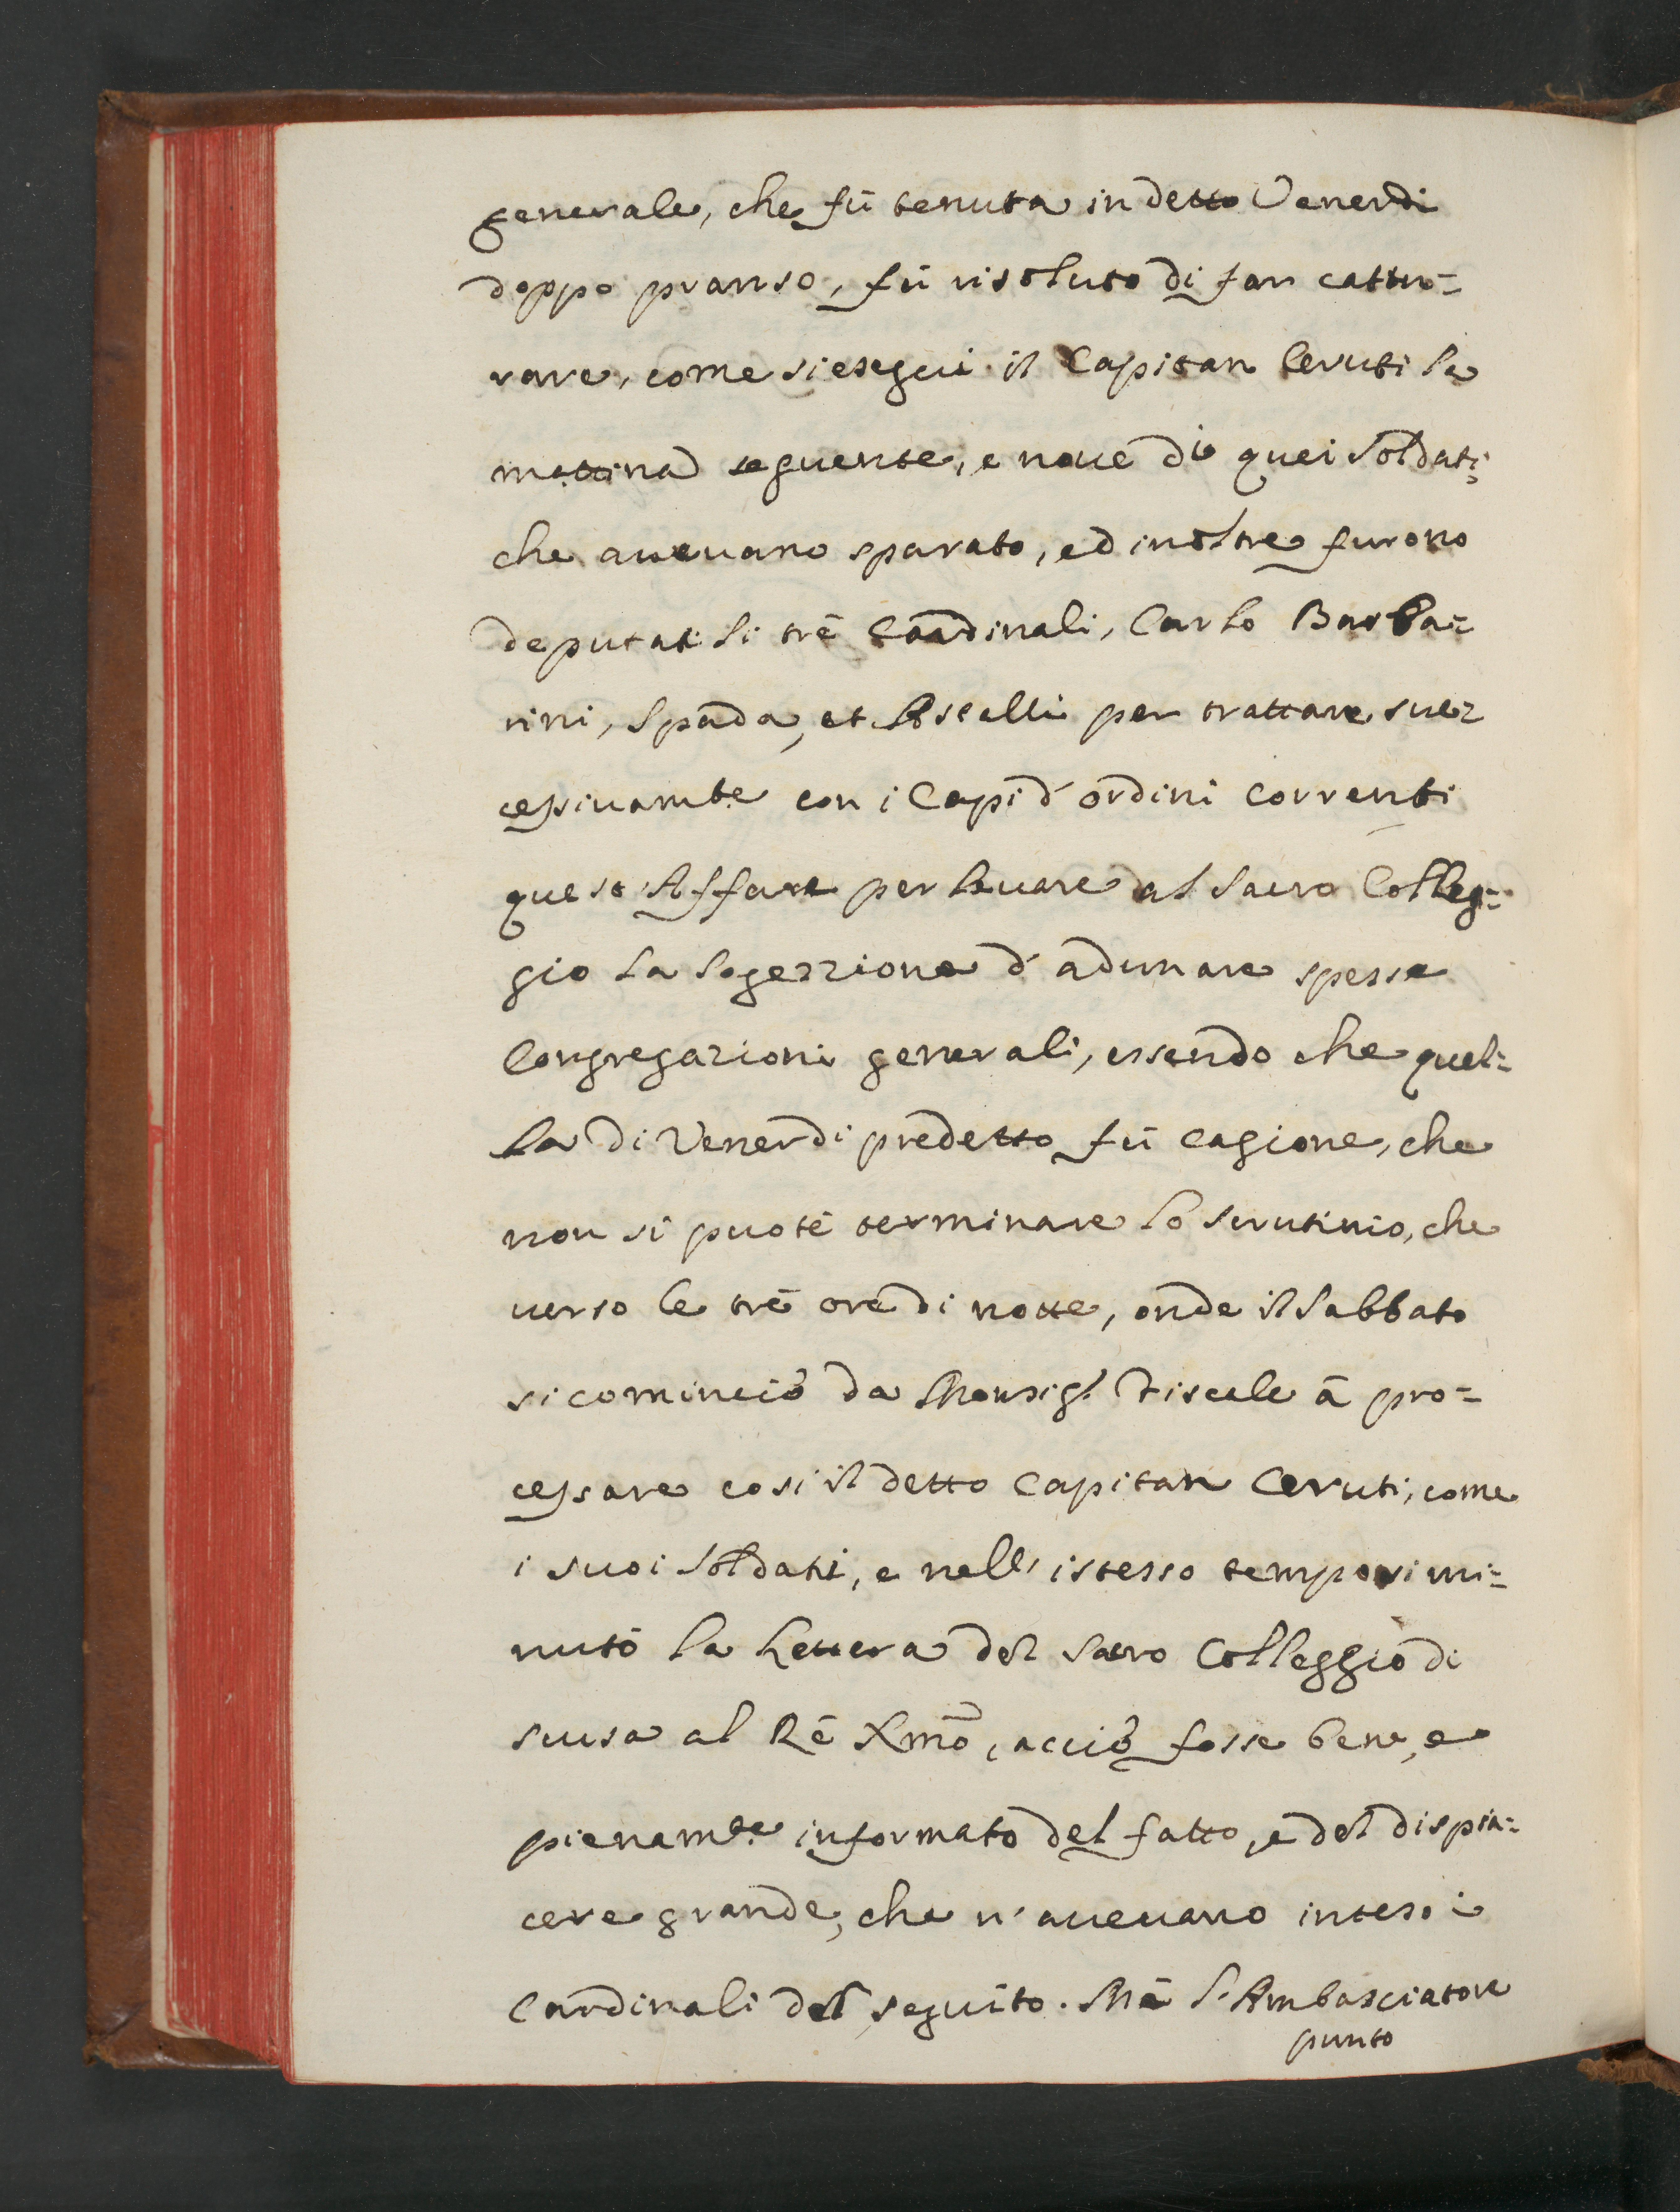 generale, che fù tenuta in detto Venerdi
doppo pranso, fù risoluto di far cattu=
rare, come si eseguì il Capitan Ceruti la
mattina seguente, e noue di quei Soldati
che aueuano sparato, ed inoltre furono
deputati li trè Cardinali, Carlo Barba=
rini, Spada, et Aselli per trattare suc=
cessiuamte con i Capi d'ordini correnti
questo Affare per leuare al Sacro Colleg=
gio la Sogezzione d'adunare spesse
Congregazioni generali, essendo che quel=
la di Venerdi predetto fù cagione, che
non si puotè terminare lo scrutinio, che
uerso le trè ore di notte, onde il Sabbato
si cominciò da Monsigr. Fiscale à pro=
cessare cosi il detto Capitan Ceruti, come
i suoi Soldati, e nell'istesso tempo si mi=
nutò la Lettera del Sacro Colleggio di
scusa al Rè Xmo, acciò fosse bene, e
pienamte informato del fatto, e del dispia=
cere grande, che n'aueuano inteso i
Cardinali del seguito. Mà l'Ambasciatore
punto